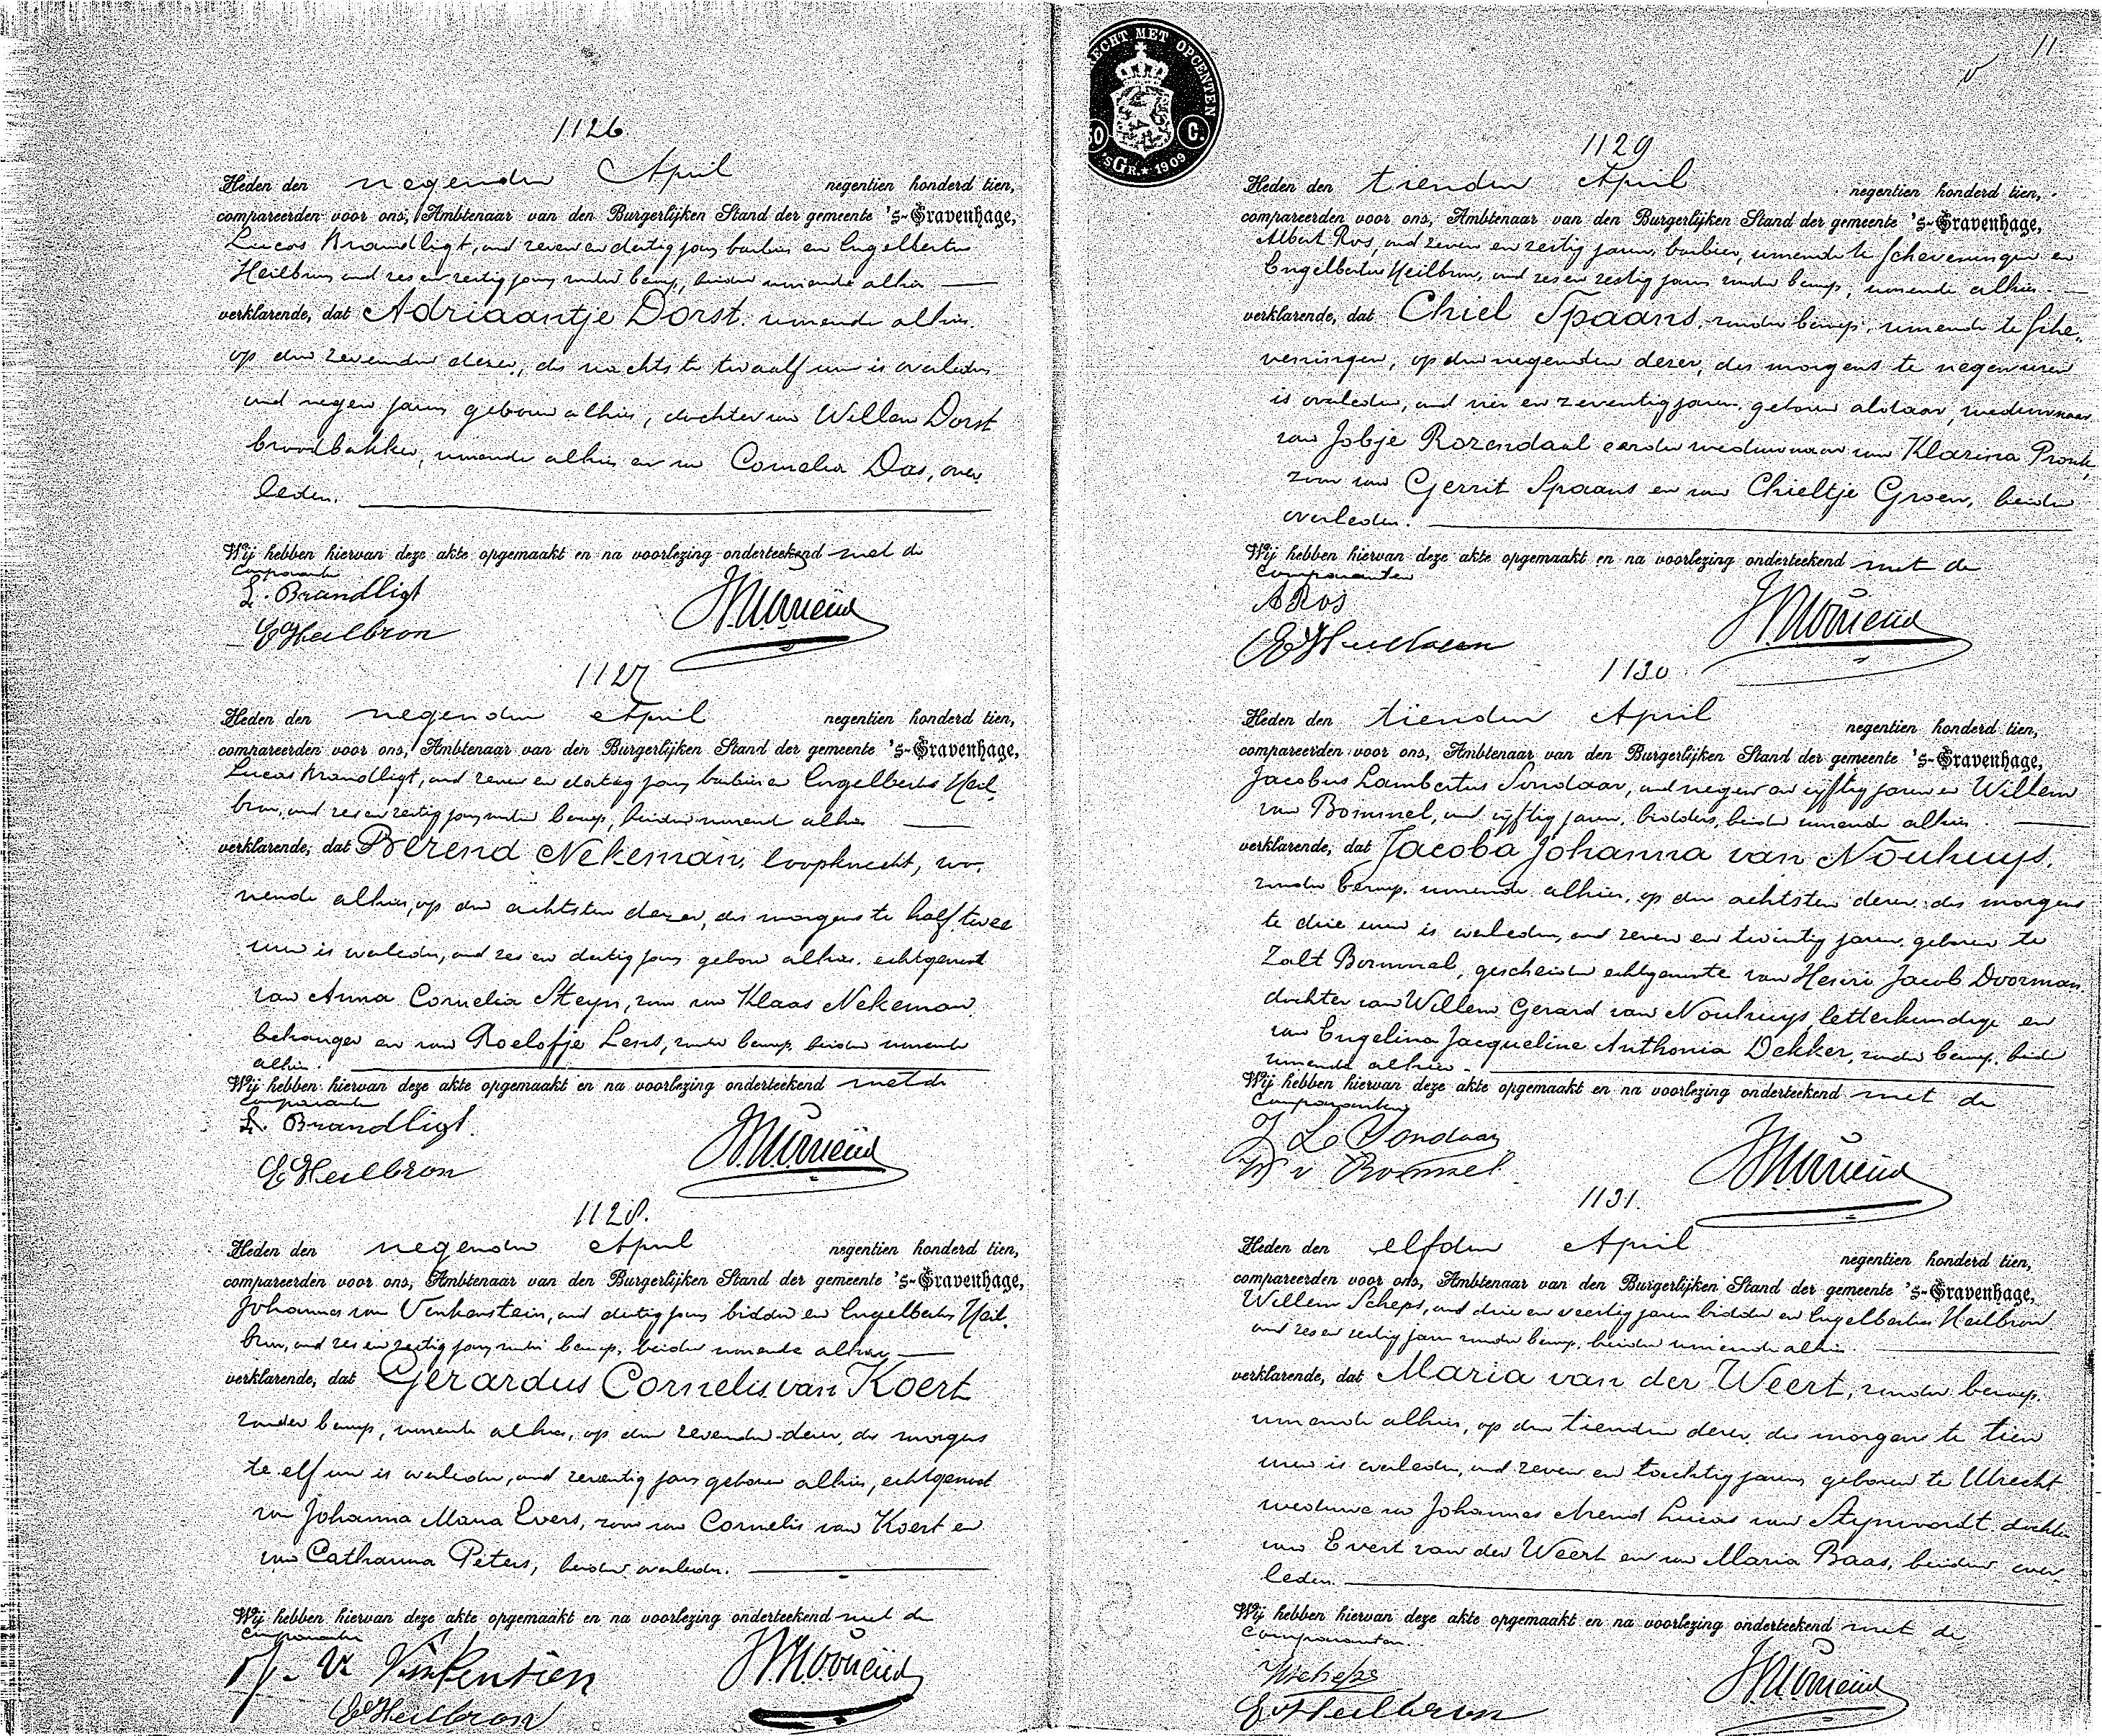 1126.
Heden den negenden April negentien honderd tien,
compareerden voor ons, Ambtenaar van den Burgerlijken Stand der gemeente 's-Gravenhage,
Lucas Brandligt, oud zeven en dertig jaren barbier en Engelbertus
Heilbron oud zes en zestig jaren zonder beroep, beiden wonende alhier
verklarende, dat Adriaantje Dorst. wonende alhier.
op den zevenden dezer, des nachts te twaalf uur is overleden
oud negen jaren geboren alhier, dochter van Willem Dorst
broodbakker, wonende alhier en van Cornelia Das, over
leden.
Wij hebben hiervan deze akte opgemaakt en na voorlezing onderteekend met de
Comparanten
L. Brandligt
E Heilbron
1127
Heden den negenden April negentien honderd tien,
compareerden voor ons, Ambtenaar van den Burgerlijken Stand der gemeente 's-Gravenhage,
Lucas Brandligt, oud zeven en dertig jaren barbier en Engelbertus Heil
bron, oud zes en zestig jaren zonder beroep, beiden wonende alhier
verklarende, dat Berend Nekeman, loopknecht, wo,
nende alhier, op den achtsten dezer, des morgens te half twee
uur is overleden, oud zes en dertig jaren geboren alhier. echtgenoot
van Anna Cornelia Steyn, zoon van Klaas Nekeman.
behanger en van Roelofje Lens, zonder beroep, beiden wonende
alhier.
Wij hebben hiervan deze akte opgemaakt en na voorlezing onderteekend met de
Comparanten
L. Brandligt.
E Heilbron
1128.
Heden den negenden April negentien honderd tien,
compareerden voor ons, Ambtenaar van den Burgerlijken Stand der gemeente 's-Gravenhage,
Johannes van oud dertig jaren bidder en Engelbertus Heil.
bron, oud zes en zestig jaren zonder beroep, beiden wonende alhier
verklarende, dat Gerardus Cornelis van Koert
zonder beroep, wonende alhier, op den zevenden dezer, des morgens
te elf uur is overleden, oud zeventig jaren geboren alhier, echtgenoot
van Johanna Maria Evers, zoon van Cornelis van Koert en
van Catharina Peters, beiden overleden.
Wij hebben hiervan deze akte opgemaakt en na voorlezing onderteekend met de
Comparanten
E Heilbron
RECHT MET OPCENTEN
50 C.
'sGR. 1909
11.
1129
Heden den tienden April negentien honderd tien,
compareerden voor ons, Ambtenaar van den Burgerlijken Stand der gemeente 's-Gravenhage,
Albert Ros, oud zeven en zestig jaren, barbier, wonende te Scheveningen en
Engelbertus Heilbron, oud zes en zestig jaren zonder beroep, wonende alhier.
verklarende, dat Chiel Spaans, zonder beroep, wonende te Sche,,
veningen, op den negenden dezer, des morgens te negen uren
is overleden, oud vier en zeventig jaren. geboren aldaar, weduwnaar
van Jobje Rozendaal eerder weduwnaar van Klazina Pronk,
zoon van Gerrit Spaans en van Chieltje Groen, beiden
overleden.
Wij hebben hiervan deze akte opgemaakt en na voorlezing onderteekend met de
Comparanten
A Ros
E Heilbron
1130
Heden den tienden April negentien honderd tien,
compareerden voor ons, Ambtenaar van den Burgerlijken Stand der gemeente 's-Gravenhage,
Jacobus Lambertus Sondaar, oud negen en vijftig jaren en Willem
van Bommel, oud vijftig jaren, bidders, beiden wonende alhier.
verklarende, dat Jacoba Johanna van Nouhuys.
zonder beroep. wonende alhier, op den achtsten dezer. des morgens
te drie uren is overleden, oud zeven en twintig jaren. geboren te
Zalt Bommel, gescheiden echtgenoote van Henri Jacob Doorman.
dochter van Willem Gerard van Nouhuys, letterkundige en
van Engelina Jacqueline Anthonia Dekker, zonder beroep, beiden
wonende alhier.
Wij hebben hiervan deze akte opgemaakt en na voorlezing onderteekend met de
Comparanten
J L Sondaar
W v Bommel
1131.
Heden den elfden April negentien honderd tien,
compareerden voor ons, Ambtenaar van den Burgerlijken Stand der gemeente 's-Gravenhage,
Willem Scheps, oud drie en veertig jaren bidder en Engelbertus Heilbron
oud zes en zestig jaren zonder beroep, beiden wonende alhier.
verklarende, dat Maria van der Weert, zonder beroep.
wonende alhier, op den tienden dezer, des morgens te tien
uren is overleden, oud zeven en tachtig jaren, geboren te Utrecht
weduwe van Johannes Arend Lucas van dochter
van Evert van der Weert en van Maria Baas, beiden over
leden.
Wij hebben hiervan deze akte opgemaakt en na voorlezing onderteekend met de
Comparanten.
WScheps
E Heilbron